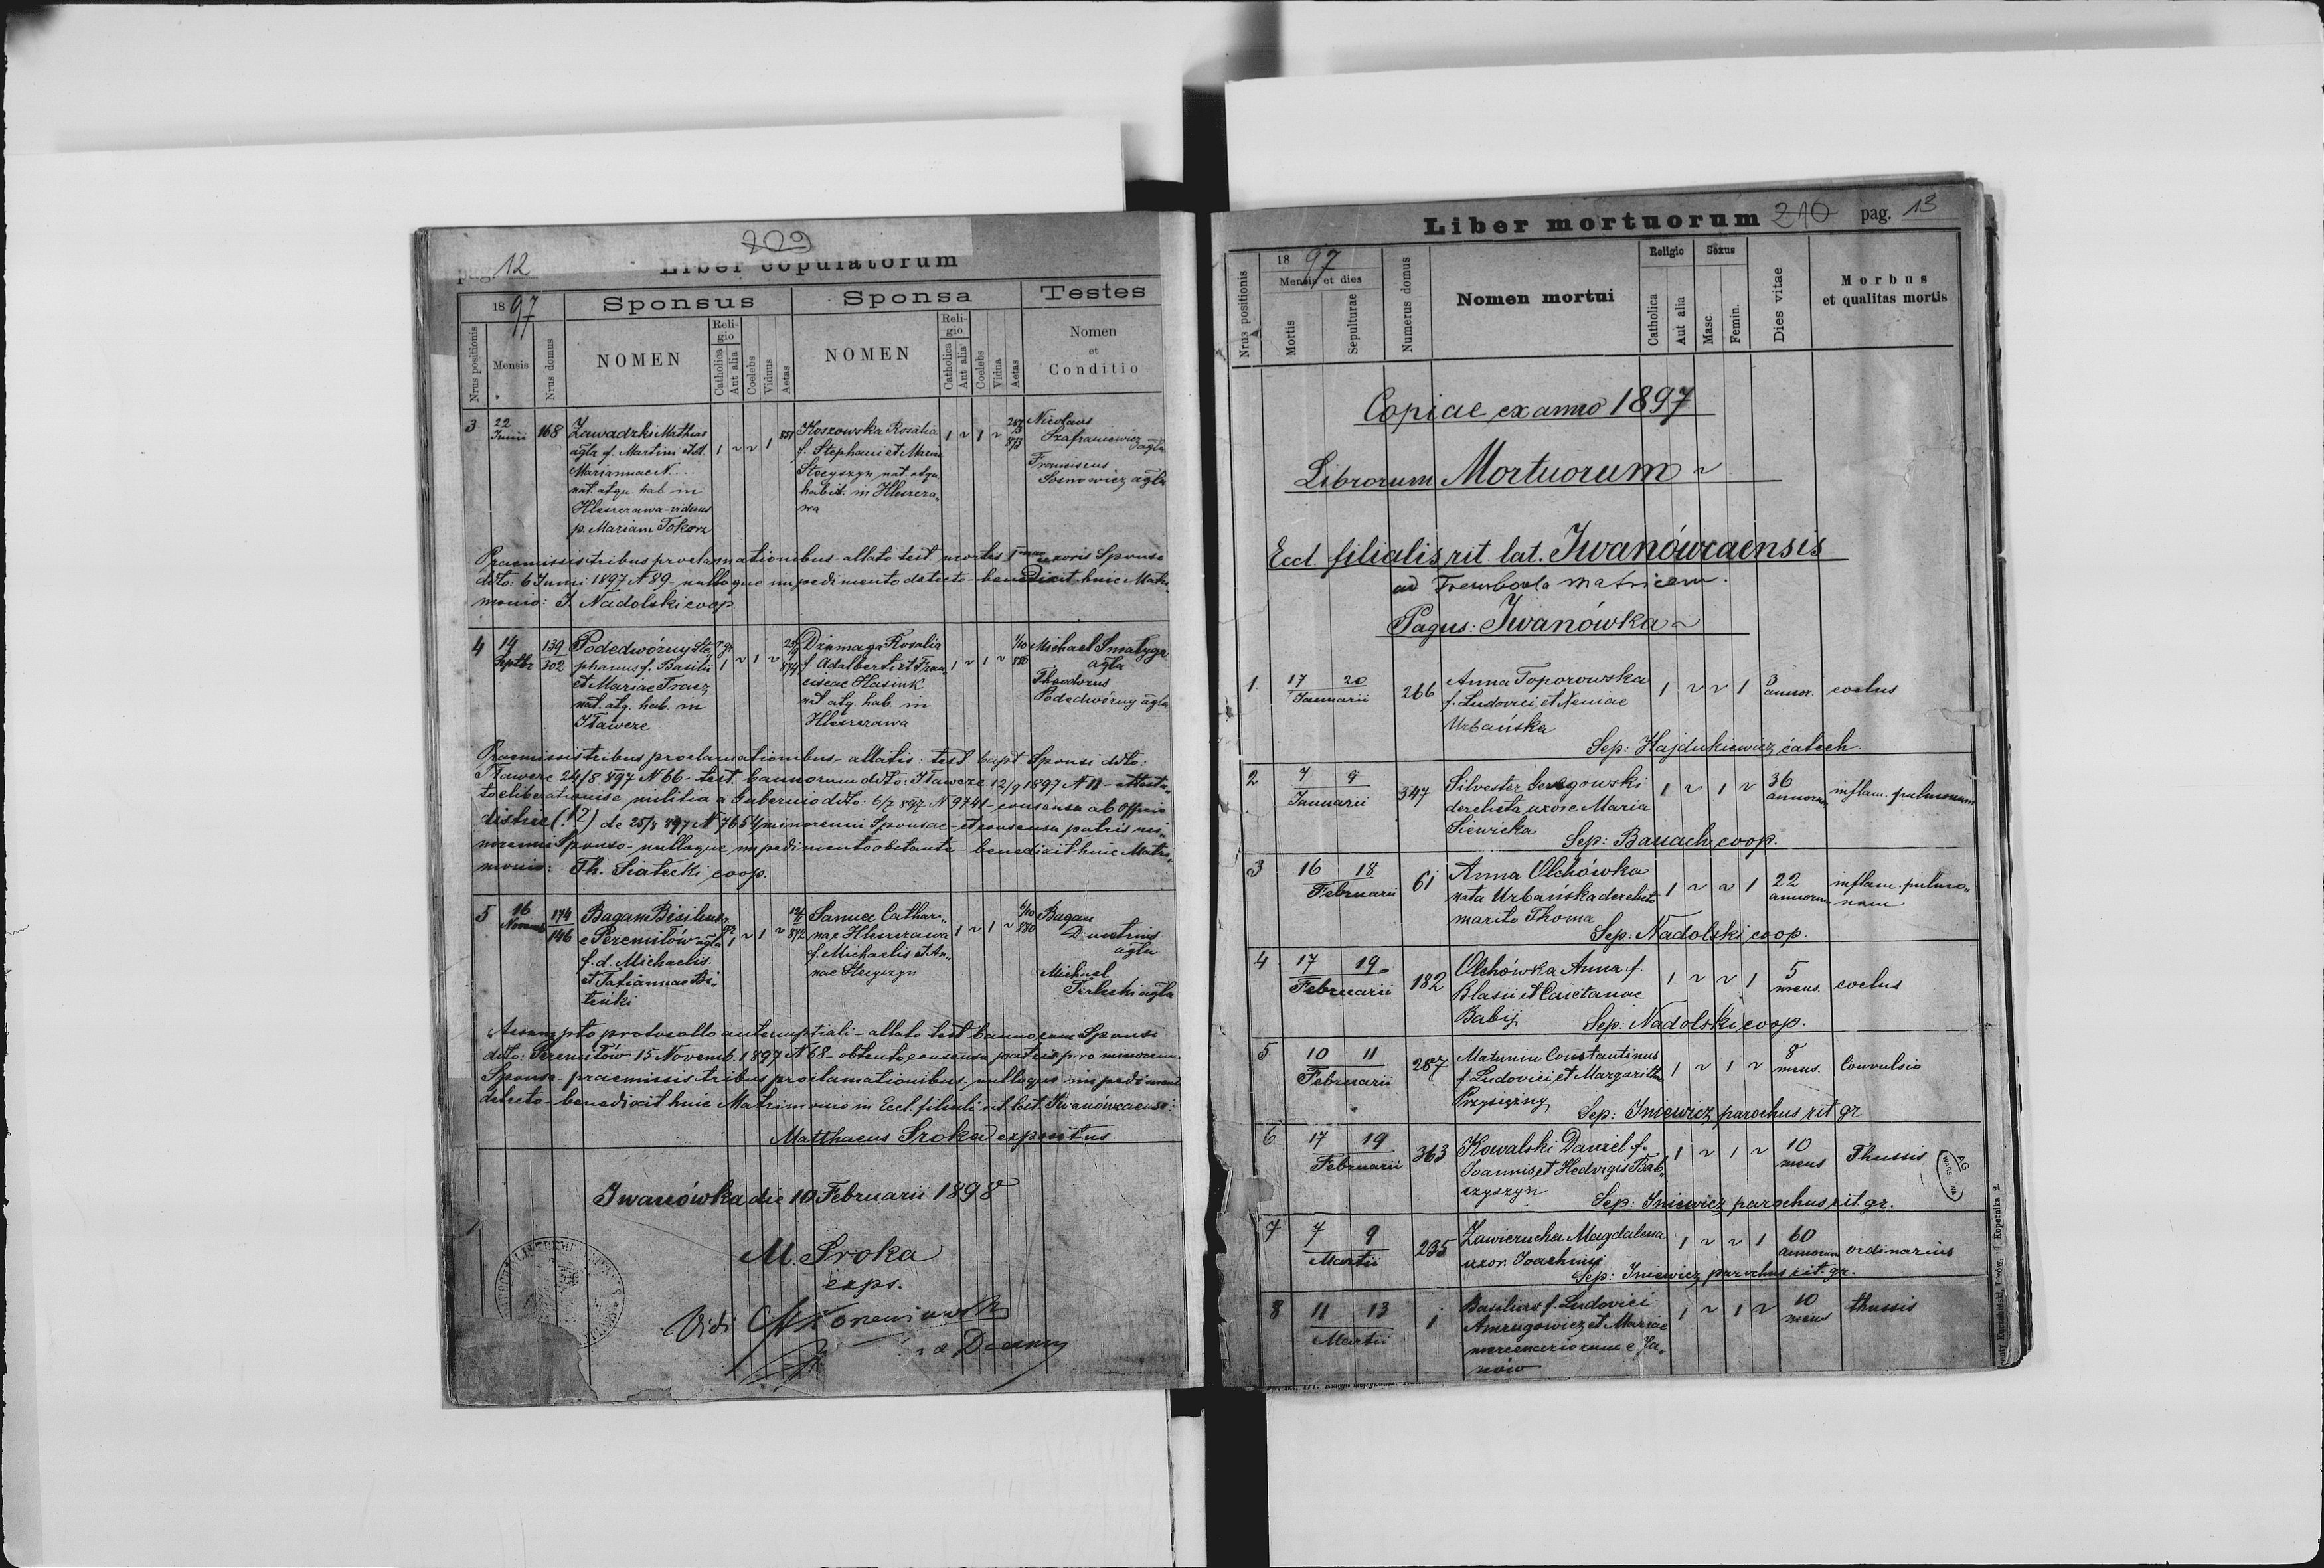 209
pag. 12
Liber copulatorum
1897
Sponsus
Sponsa
Testes
Nrus positionis
Mensis
Nrus domus
NOMEN
Religio
Catholica
Aut alia
Coelebs
Viduus
Aetas
NOMEN
Religio
Catholica
Aut alia
Coelebs
Vidua
Aetas
Nomen
et
Conditio
3 22 Junii 168
Zawadzki Mathias
agla f. Martini et
Mariannae N...
nat. atqu. hab in
Hleszczawa - viduus
p. Mariam Tokarz
1 ~ ~ 1 851
Koszowska Rosalia
f. Stephani et Mariae
Stecyszyn nat. atqu.
habit. in Hleszcza„
wa
1 ~ 1 ~ 873
Nicolaus
Szafraniewicz agla
Franciscus
Sosnowicz agla
Praemissis tribus proclamationibus - allato test. mortis I uxoris Sponsi
dito: 6 Junii 1897 N 89 - nulloque impedimento detecto - benedixit huic Matri„
monio: J. Nadolski coop
4 14 Septbr 139 302
Podedwórny Ste„
phanus f. Basilii
et Mariae Tracz
nat. atq. hab. in
Iławcze
gr 1 ~ 1 ~ 874
Dzumaga Rosalia
f. Adalberti et Fran„
ciscae Hasiuk
nat atq. hab in
Hleszczawa
1 ~ 1 ~ 1/10 880
Michael Smatyga
agla
Theodorus
Podedwórny agla
Praemissis tribus proclamationibus - allatis: test bapt. Sponsi dito:
Iławcze 24/8 897 N 66 - test. bannorum dito: Iławcze 12/9 1897 N 11 - attesta„
to liberationis e militia a Gubernio dito: 6/7 897 N 9741 - consensu ab Officio
district (!?) de 25/8 897 N 7654 minorenni Sponsae - et consensu patris mi„
norenni Sponso - nulloque impedimento obstante - benedixit huic Matri„
monio: Th. Siatecki coop.
5 16 Novemb 174 146
Bagan Basilius
e Peremilów agla
f. d. Michaelis
et Tatiannae Bi„
teńki
gr 1 ~ 1 ~ 872
Sanua Cathari„
nae Hleszczawa
f. Michaelis et An„
nae Stecyszyn
1 ~ 1 ~ 6/10 880
Bagan
Dimetrius
agla
Michael
Tirlecki agla
Assumpto protocollo antenuptiali - allato test bannorum Sponsi
dito: Peremilów 15 Novemb. 1897 N 68 - obtento consensu patris pro minorenni
Sponsa - praemissis tribus proclamationibus, nulloque impedimento
detecto - benedixit huic Matrimonio in Eccl. filiali rit. lat. Iwanówcaensi:
Matthaeus Sroka expositus.
Iwanówka die 10 Februarii 1898
M. Sroka
exps.
Vidi
Liber mortuorum 210 pag. 13
Nrus positionis
1897
Mensis et dies
Mortis
Sepulturae
Numerus domus
Nomen mortui
Religio
Catholica
Aut alia
Sexus
Masc
Femin.
Dies vitae
Morbus
et qualitas mortis
Copiae ex anno 1897
Librorum Mortuorum ~
Eccl. filialis rit. lat. Iwanówcaensis
ad Trembovla matricem.
Pagus: Iwanówka ~
1. 17 20 Januarii 266
Anna Toporowska
f. Ludovici et Xeniae
Urbańska
1 ~ ~ 1 3 annor. coctus
Sep: Hajdukiewicz catech.
2 7 9 Januarii 347
Silvester
derelicta uxore Maria
Siewicka
1 ~ 1 ~ 36 annorum inflam. pulmonum
Sep: Banach coop.
3 16 18 Februarii 61
Anna Olchówka
nata Urbańska derelicto
marito Thoma
1 ~ ~ 1 22 annorum inflam. pulmo„
num
Sep: Nadolski coop.
4 17 19 Februarii 182
Olchówka Anna f.
Blasii et Caietanae
Babij
1 ~ ~ 1 5 mens. coctus
Sep: Nadolski coop.
5 10 11 Februarii 287
Matunin Constantinus
f. Ludovici et Margarithae
Przysiężny
1 ~ 1 ~ 8 mens. Convulsio
Sep: Iniewicz parochus rit gr
6 17 19 Februarii 363
Kowalski Daniel f.
Joannis et Hedvigis Bab„
czyszyn
1 ~ 1 ~ 10 mens Thussis
Sep: Iniewicz parochus rit. gr.
7 7 9 Martii 235
Zawierucha Magdalena
uxor. Joachimi
1 ~ ~ 1 60 annorum ordinarius
Sep: Iniewicz parochus rit. gr.
8 11 13 Martii 1
Basilius f. Ludovici
Amrugowicz et Mariae
mercenariorum e Ja„
nów
1 ~ 1 ~ 10 mens thussis
Kopernika 2.